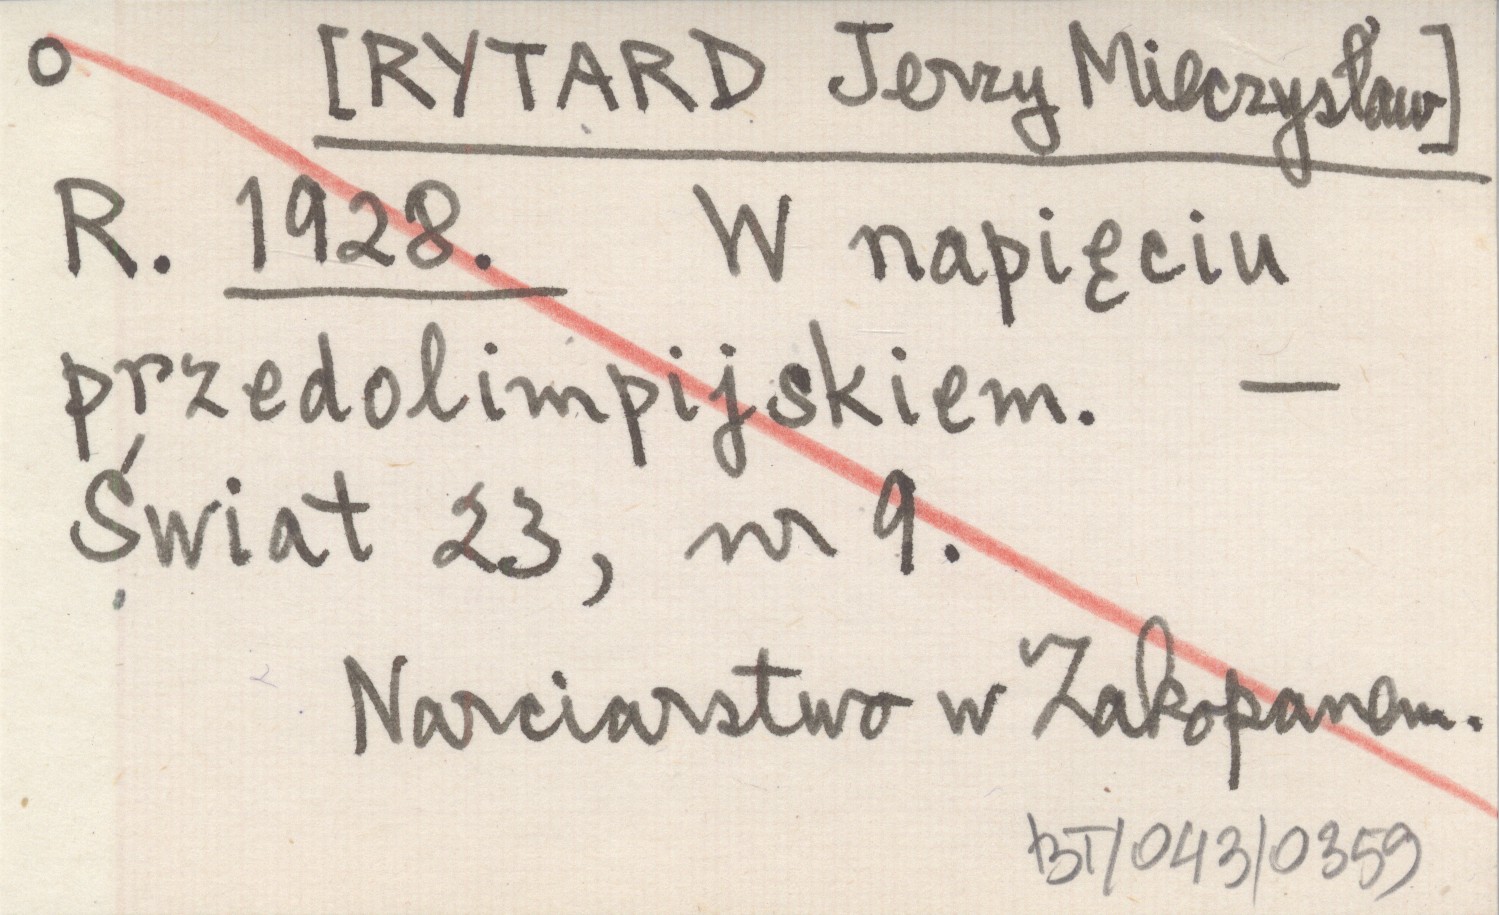 o [RYTARD Jerzy Mieczysław]
R. 1928. W napięciu
przedolimpijskiem. —
Świat 23, nr 9.
Narciarstwo w Zakopanem.
BT/043/0359